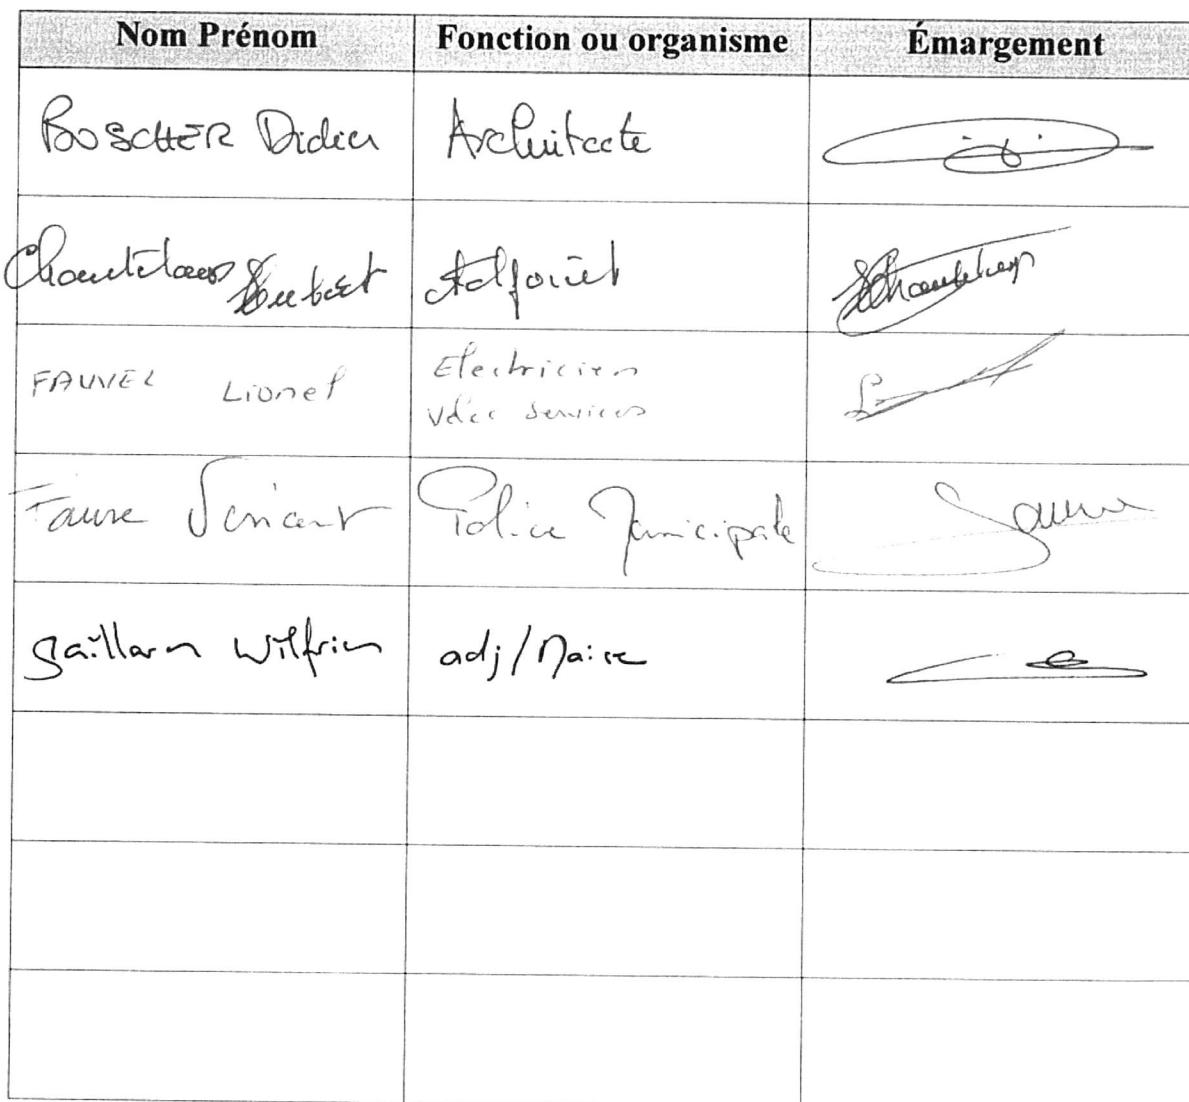 Nom Prénom Fonction ou organisme Émargement
BOSCHER Didier Architecte
Hubert Adjoint
FAUVEL Lionel Electricien
services
Faure Vincent Police Municipale
gaillard Wilfried adj/Maire